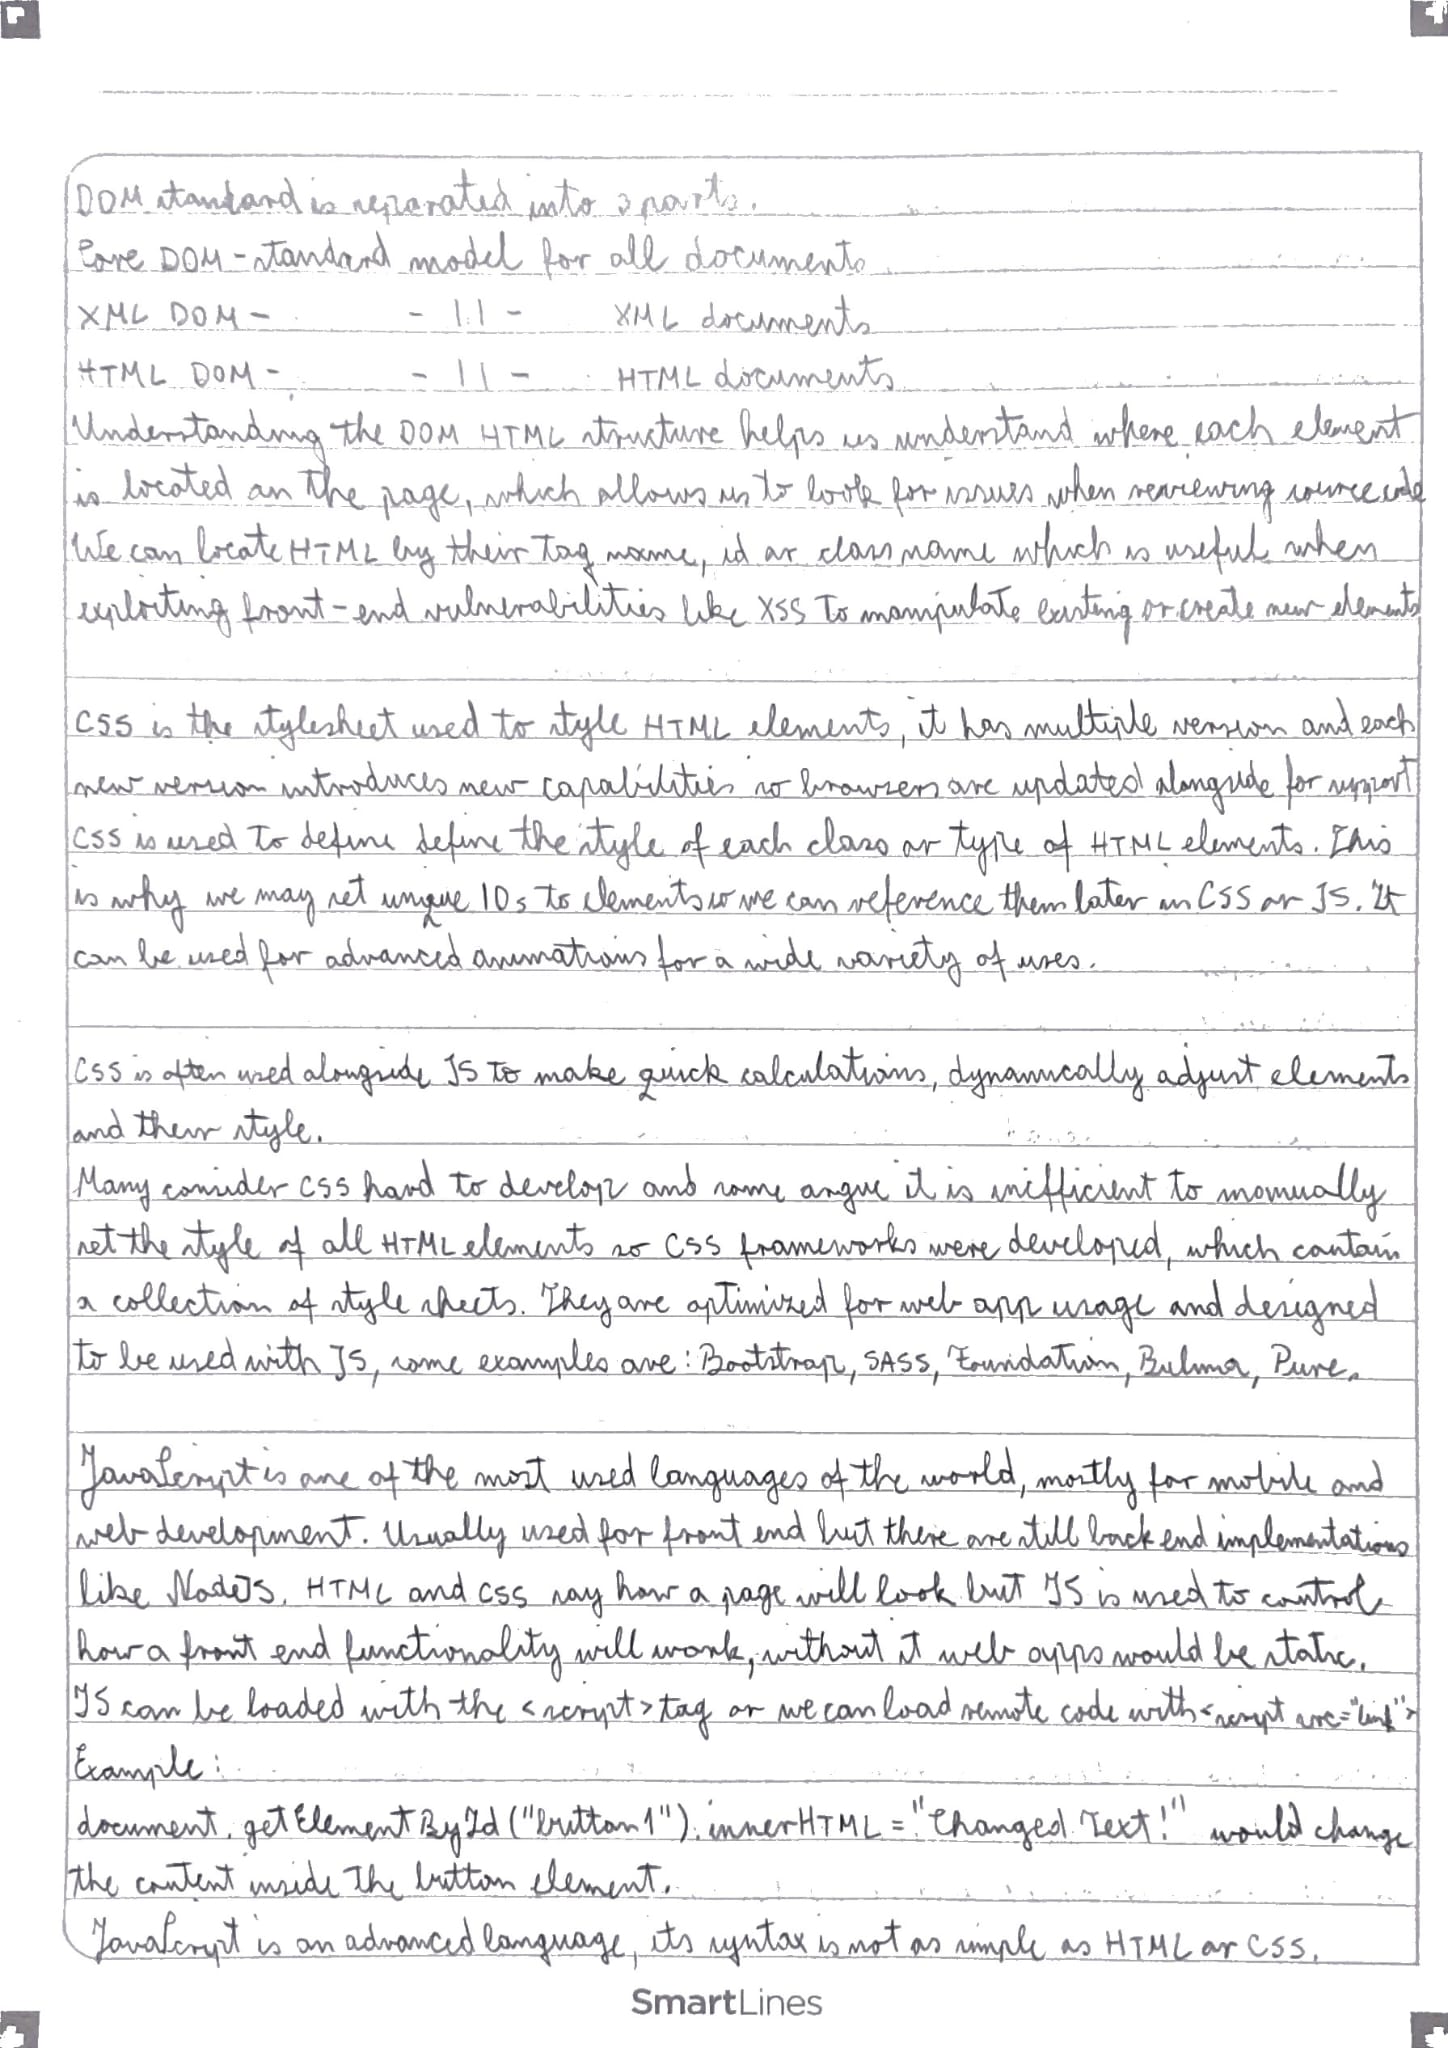 DOM standard is separated into 3 parts.
Core DOM - standard model for all documents
XML DOM - - 11 - XML documents
HTML DOM - - 11 - HTML documents
Understanding the DOM HTML structure helps us understand where each element
is located on the page, which allows us to look for issues when reviewing source code
We can locate HTML by their tag name, id or class name which is useful when
exploiting front-end vulnerabilities like XSS to manipulate existing or create new elements
CSS is the stylesheet used to style HTML elements, it has multiple version and each
new version introduces new capabilities so browsers are updated alongside for support
CSS is used to define define the style of each class or type of HTML elements. This
is why we may set unique IDs to elements so we can reference them later in CSS or JS. It
can be used for advanced animations for a wide variety of uses.
CSS is often used alongside JS to make quick calculations, dynamically adjust elements
and their style.
Many consider CSS hard to develop and some argue it is inifficient to manually
set the style of all HTML elements so CSS frameworks were developed, which contain
a collection of style sheets. They are optimized for web app usage and designed
to be used with JS, some examples are: Bootstrap, SASS, Foundation, Bulma, Pure.
JavaScript is one of the most used languages of the world, mostly for mobile and
web development. Usually used for front end but there are still back end implementations
like NodeJS. HTML and CSS say how a page will look but JS is used to control
how a front end functionality will work, without it web apps would be static.
JS can be loaded with the <script> tag or we can load remote code with <script src="link">
Example:
document.getElementById("button1").innerHTML = "Changed Text!" would change
the content inside the button element.
JavaScript is an advanced language, its syntax is not as simple as HTML or CSS.
SmartLines